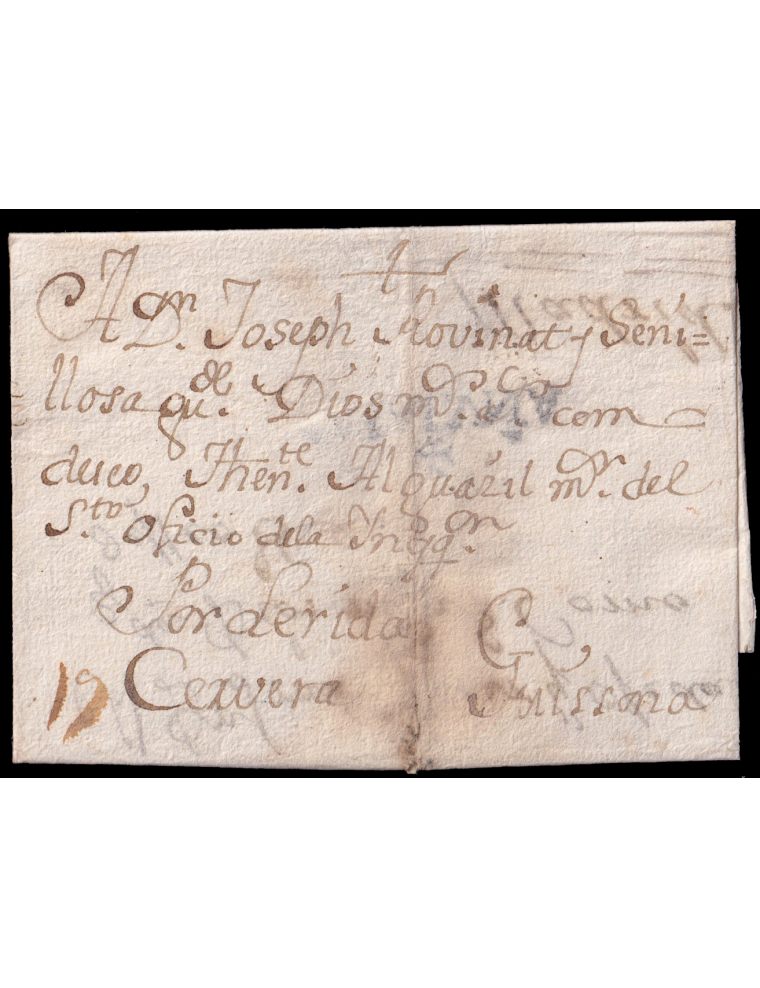 A Dn. Joseph Rovinat y Seni=
llosa qu. de Dios m.s a.s com
deseo, Thente. Alguazil mr. del
Sto. Oficio de la Inqqon.
Por Lerida
Cervera Guissona
19